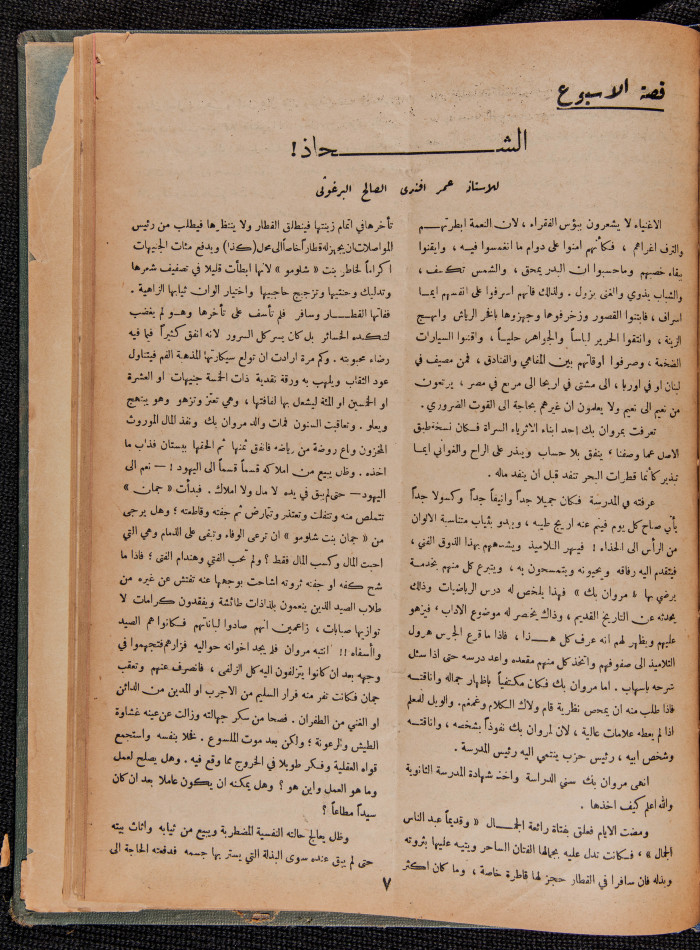 قصة الاسبوع
الشحاذ!
للاستاذ عمر افندى الصالح البرغوثى
الاغنياء لا يشعرون ببؤس الفقراء ، لان النعمة ابطرتهم
والترف اغراهم ، فكأنهم امنوا على دوام ما انغمسوا فيه ، وايقنوا
ببقاء خصبهم وما حسبوا ان البدر يمحق ، والشمس تكسف ،
والشباب يذوي والغنى يزول . ولذلك فانهم اسرفوا على انفسهم ايما
اسراف ، فابتنوا القصور وزخرفوها وجهزوها بالفخر الرياش وابهج
الزينة ، وانتقوا الحرير لباساً والجواهر حلياً ، واقتنوا السيارات
الضخمة ، وصرفوا اوقاتهم بين المقاهي والفنادق ، فمن مصيف في
لبنان او في اوربا ، الى مشتى في اريحا الى مربع في مصر ، يرتعون
من نعيم الى نعيم ولا يعلمون ان غيرهم بحاجة الى القوت الضروري .
تعرفت بمروان بك احد ابناء الاثرياء السراة فكان نسخة طبق
الاصل عما وصفنا ؛ ينفق بلا حساب ويبذر على الراح والغواني ايما
تبذير كأنما قطرات البحر تنفد قبل ان ينفد ماله .
عرفته في المدرسة فكان جميلا جداً وانيقاً جداً وكسولا جداً
يأتي صباح كل يوم فينم عنه اريج طيبه ، ويبدو بثياب متناسبة الالوان
من الرأس الى الحذاء ! فيبهر التلاميذ ويشدههم بهذا الذوق الفني ،
فيتقدم اليه رفاقه ويحيونه ويتمسحون به ، ويتبرع كل منهم بخدمة
يرضي بها « مروان بك » فهذا يلخص له درس الرياضيات وذلك
يحدثه عن التاريخ القديم ، وذاك يختصر له موضوع الاداب ؛ فيزهو
عليهم ويظهر لهم انه عرف كل هذا ، فاذا ما قرع الجرس هرول
التلاميذ الى صفوفهم واتخذ كل منهم مقعده واعد درسه حتى اذا سئل
شرحه باسهاب . اما مروان بك فكان مكتفياً باظهار جماله واناقته
فاذا طلب منه ان يمحص نظرية قام ولاك الكلام وغمغم . والويل للمعلم
اذا لم يعطه علامات عالية ، لان لمروان بك نفوذاً بشخصه ، واناقته
وشخص ابيه ، رئيس حزب ينتمي اليه رئيس المدرسة .
انهى مروان بك سني الدراسة واخذ شهادة المدرسة الثانوية
والله اعلم كيف اخذها .
ومضت الايام فعلق بفتاة رائعة الجمال « وقديماً عبد الناس
الجمال » ، فكانت تدل عليه بجمالها الفتان الساحر ويتيه عليها بثروته
وبذله فان سافرا في القطار حجز لها قاطرة خاصة ، وما كان اكثر
تأخرها في اتمام زينتها فينطلق القطار ولا ينتظرها فيطلب من رئيس
المواصلات ان يجهز له قطاراً خاصاً الى محل (كذا) ويدفع مئات الجنيهات
اكراماً لخاطر بنت « شلومو » لانها ابطأت قليلا في تصفيف شعرها
وتدليك وجنتيها وتزجيج حاجبيها واختيار الوان ثيابها الزاهية .
ففاتها القطار وسافر فلم تأسف على تأخرها وهو لم يغضب
لتكبده الخسائر بل كان يسر كل السرور لانه انفق كثيراً فيما فيه
رضاء محبوبته . وكم مرة ارادت ان تولع سيكارتها المذهبة الفم فيتناول
عود الثقاب ويلهب به ورقة نقدية ذات الخمسة جنيهات او العشرة
او الخمسين او المئة ليشعل بها لفافتها ، وهي تعتز وتزهو وهو يبتهج
ويعلو . وتعاقبت السنون فمات والد مروان بك ونفذ المال الموروث
المخزون وباع روضة من رياضه فانفق ثمنها ثم الحقها ببستان فذاب ما
اخذه . وظل يبيع من املاكه قسماً قسماً الى اليهود ! — نعم الى
اليهود — حتى لم يبق في يده لا مال ولا املاك . فبدأت « جمان »
تتملص منه وتتفلت وتعتذر وتتمارض ثم جفته وقاطعته ؛ وهل يرجى
من « جمان بنت شلومو » ان ترعى الوفاء وتبقى على الذمام وهي التي
احبت المال وكسب المال فقط ؟ ولم تحب الفتى وهندام الفتى ؛ فاذا ما
شح كفه او جفته ثروته اشاحت بوجهها عنه تفتش عن غيره من
طلاب الصيد الذين ينعمون بلذاذات طائشة ويفقدون كرامات لا
توازيها صبابات ، زاعمين انهم صادوا لباناتهم فكانوا هم الصيد
وا أسفاه !! انتبه مروان فلم يجد اخوانه حواليه فزارهم فتجهموا في
وجهه بعد ان كانوا يتزلفون اليه كل الزلفى ، فانصرف عنهم وتعقب
جمان فكانت تفر منه فرار السليم من الاجرب او المدين من الدائن
او الغني من الطفران . فصحا من سكر جهالته وزالت عن عينه غشاوة
الطيش والرعونة ؛ ولكن بعد موت الملسوع . فخلا بنفسه واستجمع
قواه العقلية وفكر طويلا في الخروج مما وقع فيه . وهل يصلح لعمل
وما هو العمل واين هو ؟ وهل يمكنه ان يكون عاملا بعد ان كان
سيداً مطاعاً ؟
وظل يعالج حالته النفسية المضطربة ويبيع من ثيابه واثاث بيته
حتى لم يبق عنده سوى البذلة التي يستر بها جسمه فدفعته الحاجة الى
٧